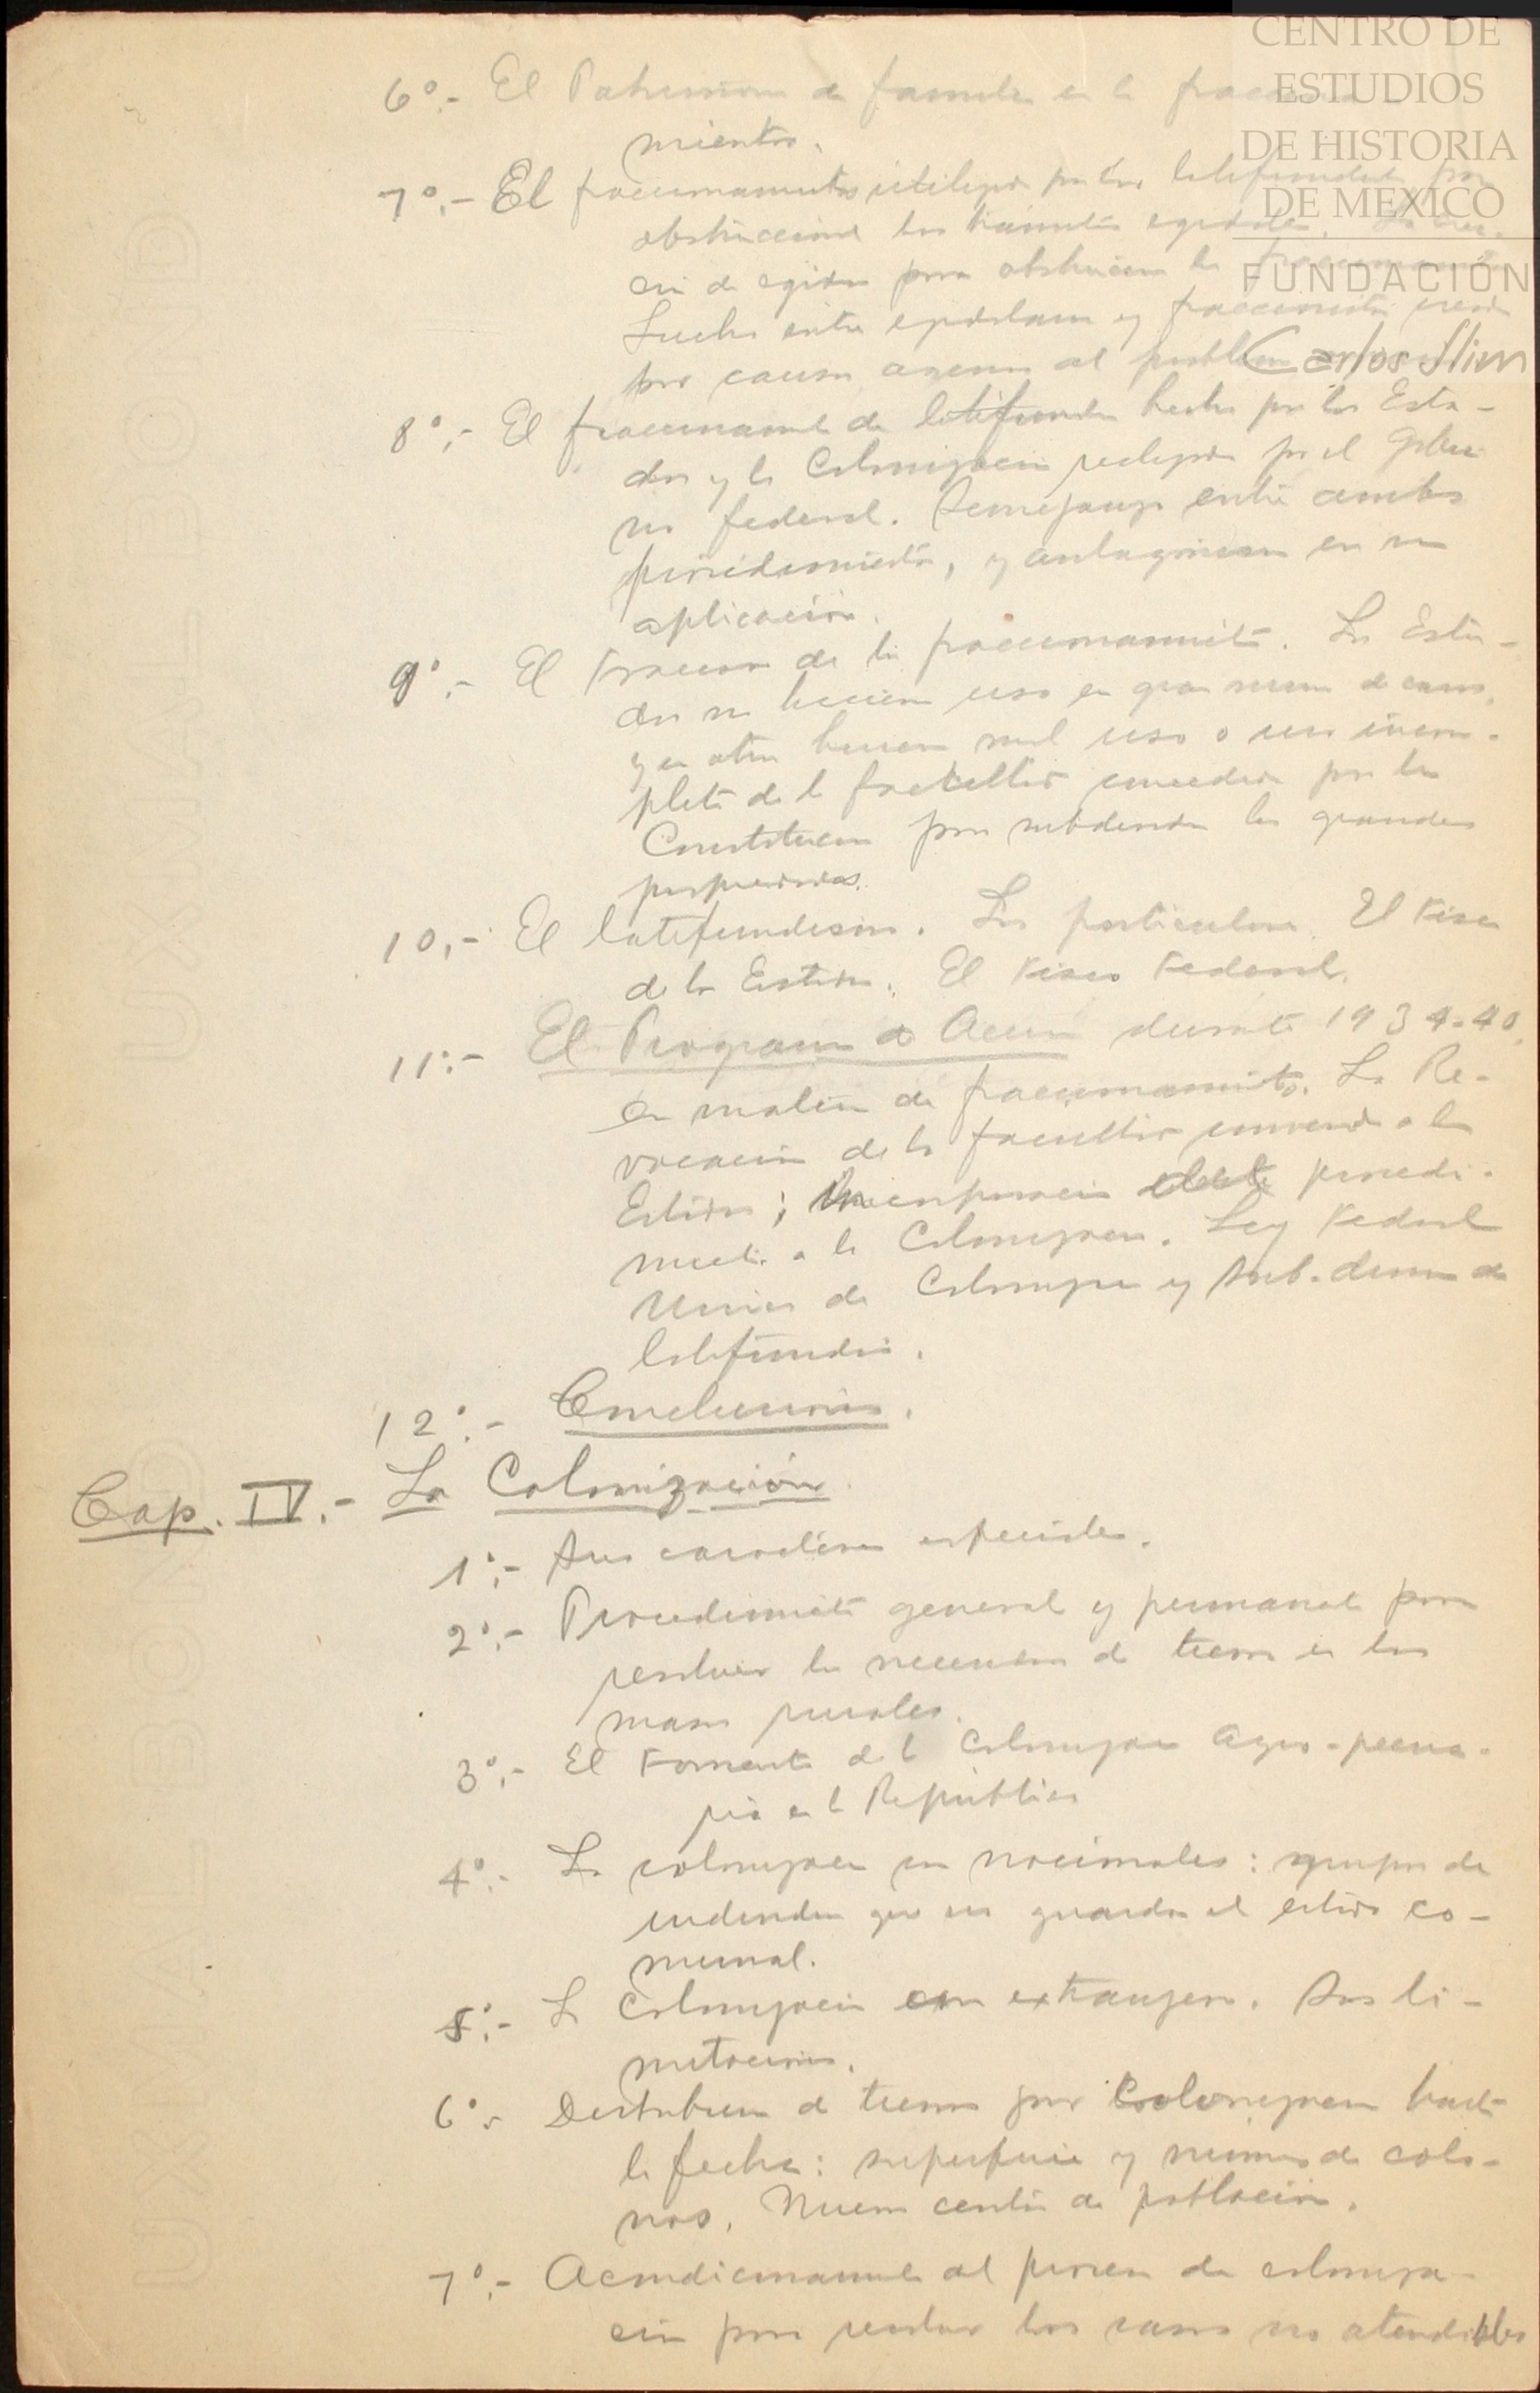 CENTRO DE
ESTUDIOS
DE HISTORIA
DE MEXICO
FUNDACIÓN
Carlos Slim
6º.- El Patrimonio de familia en los fracciona-
mientos.
7º.- El fraccionamiento utilizado por los latifundistas para
obstruccionar los trámites ejidales. La crea-
ción de ejidos para obstruccionar los
Lucha entre ejidatarios y fraccionistas creada
por causas agenas al problema
8º.- El fraccionamiento de latifundios hecho por los Esta-
dos y la Colonización realizada por el Gobier-
no federal. Semejanza entre ambos
procedimientos, y antagonismo en su
aplicación.
9º.- El Fracaso de los fraccionamientos. Los Esta-
dos no hicieron uso en gran número de casos,
y en otros hicieron mal uso o uso incom-
pleto de la facultad concedida por la
Constitución para subdividir las grandes
propiedades.
10.- El latifundismo. Los particulares. El Fisco
de los Estados. El Fisco Federal.
11º.- El Programa de Acción durante 1934-40,
en materia de fraccionamientos. La Re-
vocación de la facultad concedida a los
Estados; Incorporación de este procedi-
miento a la Colonización. Ley Federal
Unica de Colonización y Sub-division de
latifundios.
12º.- Conclusiones.
Cap. IV.- La Colonización.
1º.- Sus caracteres especiales.
2º.- Procedimiento general y permanente para
resolver las necesidades de tierras en las
masas rurales.
3º.- El Fomento de la Colonización Agro-pecua-
ria en la República
4º.- La colonización con nacionales: grupos de
individuos que no guardan el estado co-
munal.
5º.- La Colonización con extranjeros. Sus li-
mitaciones.
6º.- Distribución de tierras por Colonización hasta
la fecha: superficie y número de colo-
nos. Nuevos centros de población.
7º.- Acondicionamiento al proceso de coloniza-
ción para resolver los casos no atendibles